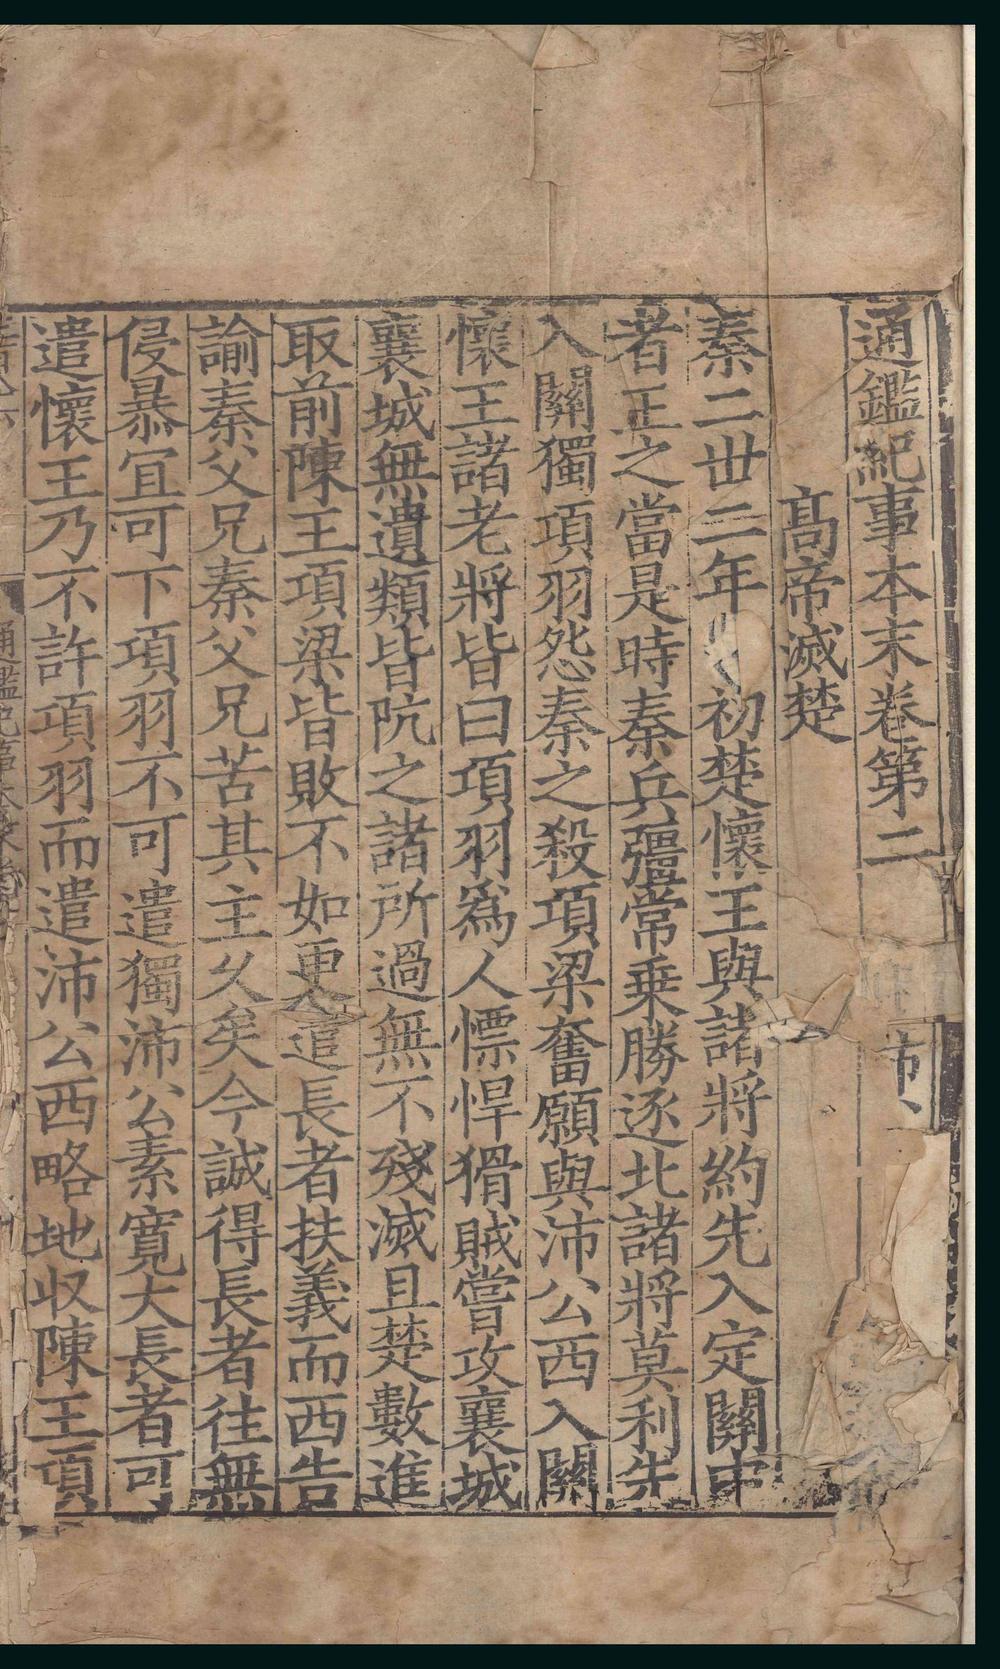 通鑑紀事本末卷第二
高帝滅楚
秦二世二年初楚懷王與諸將約先入定關中
者王之當是時秦兵彊常乗勝逐北諸將莫利先
入關獨項羽怨秦之殺項梁奮願與沛公西入關
懷王諸老將皆曰項羽爲人慓悍猾賊嘗攻襄城
襄城無遺類皆阬之諸所過無不殘滅且楚數進
取前陳王項梁皆敗不如更遣長者扶義而西告
諭秦父兄秦父兄苦其主久矣今誠得長者往無
侵暴宜可下項羽不可遣獨沛公素寛大長者可
遣懷王乃不許項羽而遣沛公西略地收陳王項
通鑑紀事本末